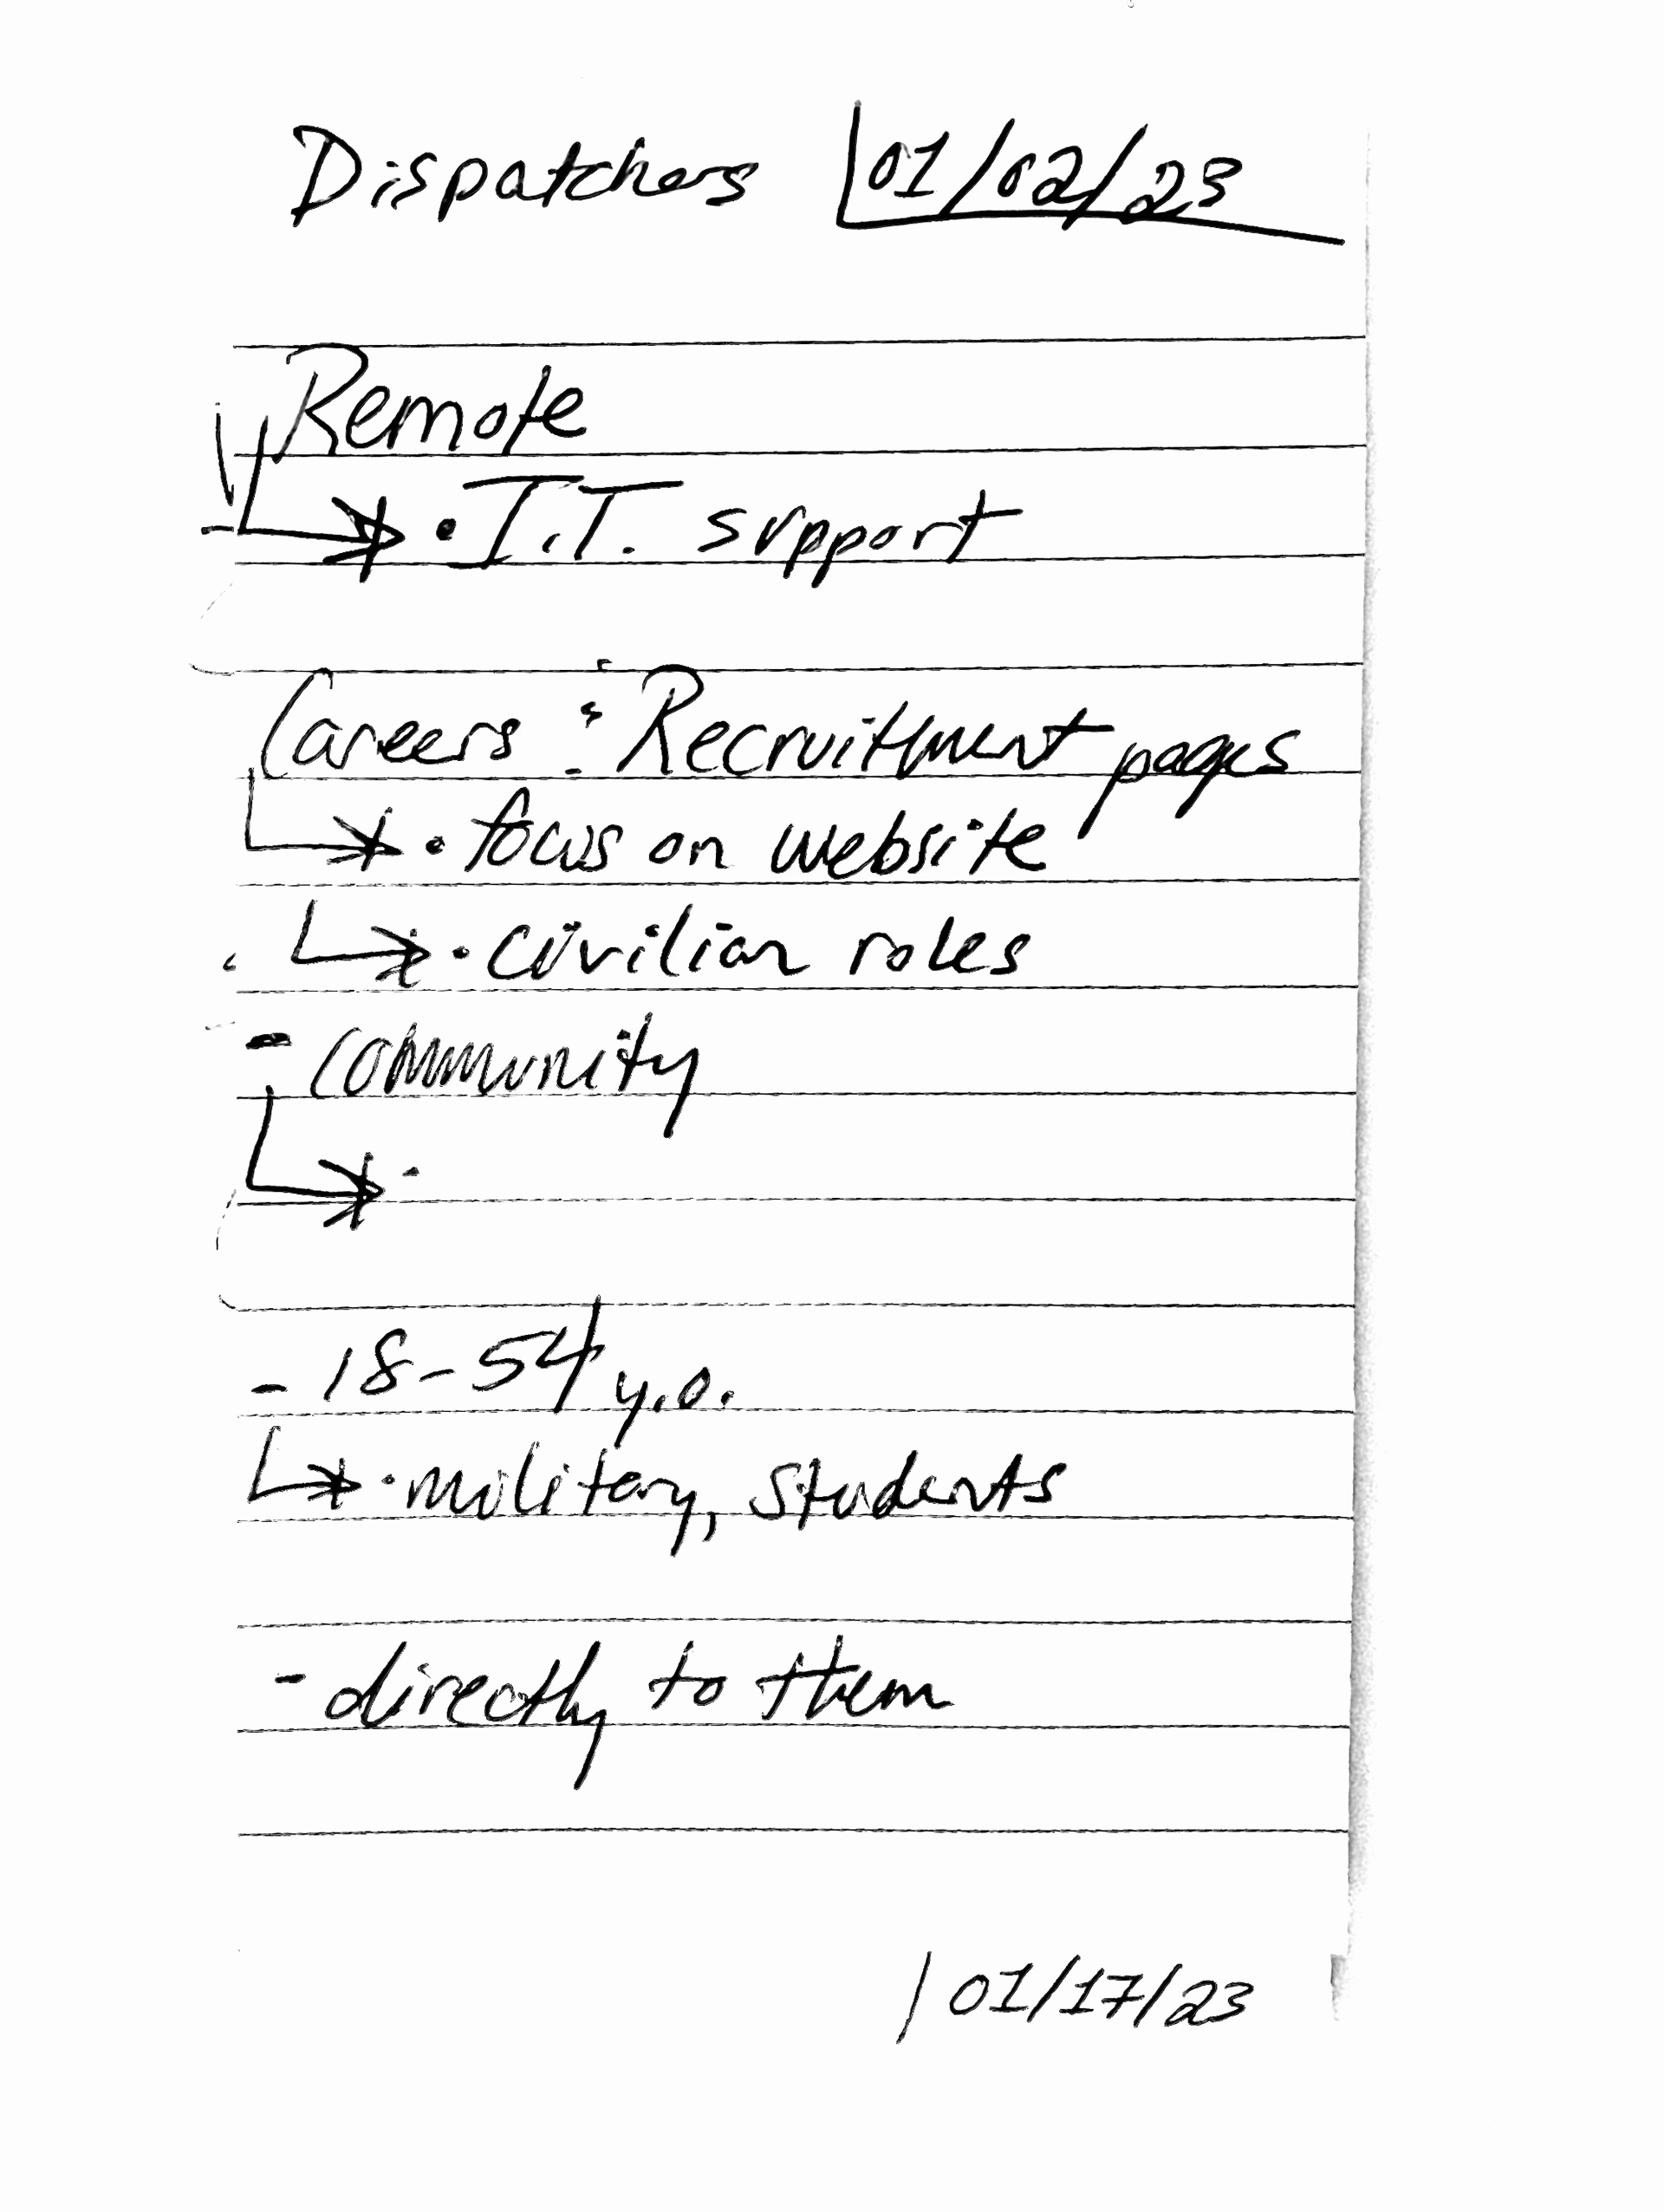 Dispatchers 01/02/23
Remote
→ • I.T. support
Careers : Recruitment pages
→ • focus on website
→ • civilian roles
- community
→ •
- 18-54 y.o.
→ • military, students
- directly to them
01/17/23